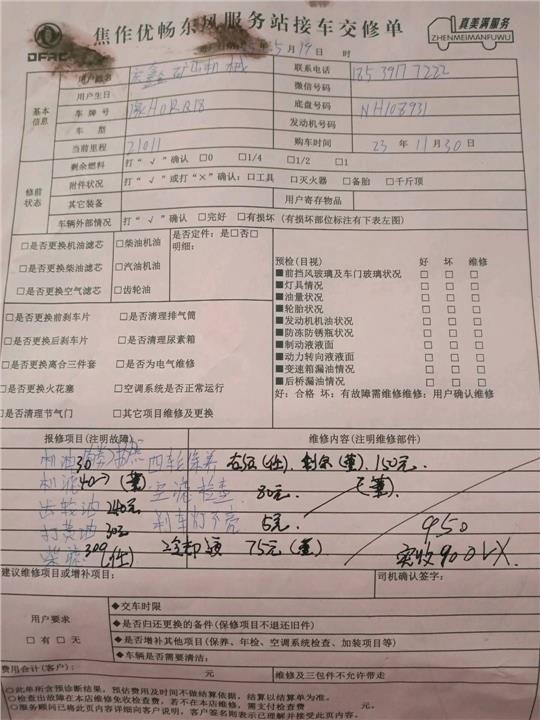 DFAC
焦作优畅东风服务站接车交修单
真美满服务
ZHENMEIMANFUWU
5月19日 时
基本信息
用户姓名 鑫 矿山机械 联系电话 18539177222
用户生日 微信号码
车牌号 豫H0RR18 底盘号码 NH108931
车型 发动机号码
当前里程 21011 购车时间 23年11月30日
修前状态
剩余燃料 打“√”确认 □0 □1/4 □1/2 □1
附件状况 打“√”或打“×”确认：□工具 □灭火器 □备胎 □千斤顶
其它装备 用户寄存物品
车辆外部情况 打“√”确认 □完好 □有损坏（有损坏部位标注有下表左图）
□是否更换机油滤芯 □柴油机油 是否定件：是□否□
明细：
□是否更换柴油滤芯 □汽油机油
□是否更换空气滤芯 □齿轮油
□是否更换前刹车片 □是否清理排气筒
□是否更换后刹车片 □是否清理尿素箱
□是否更换离合三件套 □是否为电气维修
□是否更换火花塞 □空调系统是否正常运行
□是否清理节气门 □其它项目维修及更换
预检（目视） 好 坏 维修
■前挡风玻璃及车门玻璃状况 □ □ □
■灯具情况 □ □ □
■油量状况 □ □ □
■轮胎状况 □ □ □
■发动机机油状况 □ □ □
■防冻防锈瓶状况 □ □ □
■制动液液面 □ □ □
■动力转向液液面 □ □ □
■变速箱漏油情况 □ □ □
■后桥漏油情况 □ □ □
好：合格 坏：有故障需维修维修：用户确认维修
报修项目（注明故障） 维修内容（注明维修部件）
机油 30 四轮保养 右后（仕）．剩余（董）．150元．
机滤 40 （董） 空滤 检查 80元． （董）．
齿轮油 240元 刹车灯不亮 5元． 950
打黄油 30元 实收900 VX．
柴滤 300（仕） 冷却液 75元（董）
建议维修项目或增补项目： 司机确认签字：
用户要求
□有 □无
◆交车时限
◆是否归还更换的备件（保修项目不退还旧件）
◆是否增补其他项目（保养、年检、空调系统检查、加装项目等）
◆车辆是否需要清洁：
费用合计（客户）： 元 维修及三包件不允许带走
○此单所含预诊断结果，预估费用及时间不做结算依据，结算以结算单为准。
○检查出故障在本店维修免收检查费，若不在本店维修，需支付检查费 元。
○服务顾问已将此页内容详细向客户说明，客户签名则表示已理解并接受此页内容。